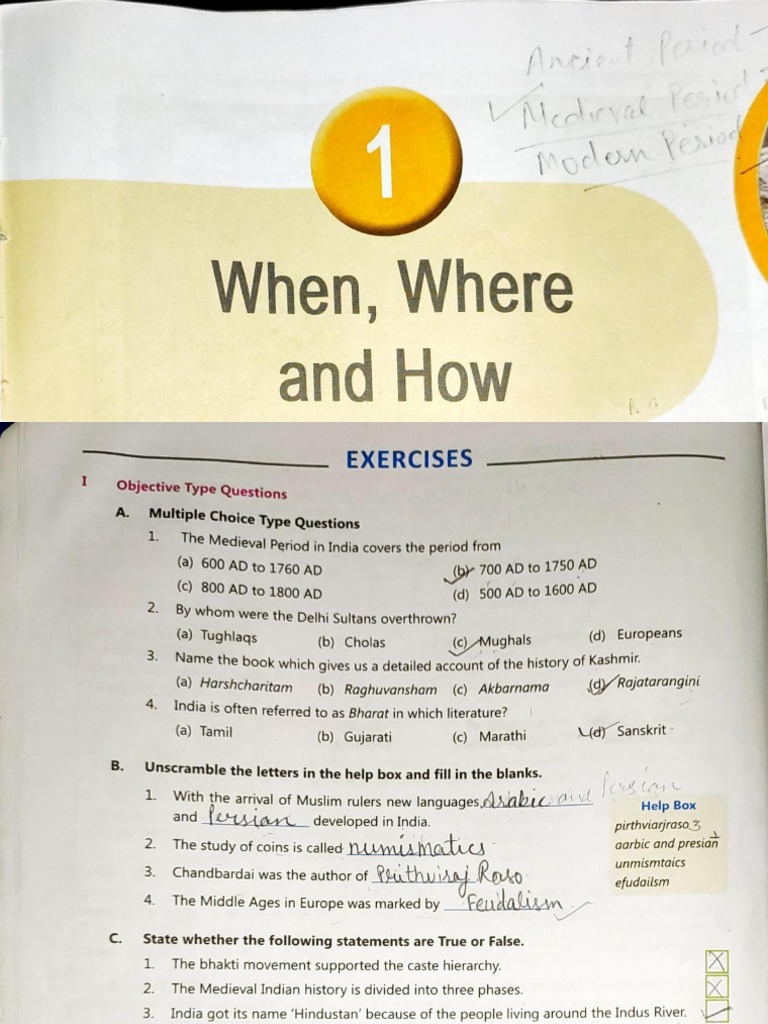 Ancient Period
Medieval Period
Modern Period
1
When, Where
and How
EXERCISES
I Objective Type Questions
A. Multiple Choice Type Questions
1. The Medieval Period in India covers the period from
(a) 600 AD to 1760 AD (b) 700 AD to 1750 AD
(c) 800 AD to 1800 AD (d) 500 AD to 1600 AD
2. By whom were the Delhi Sultans overthrown?
(a) Tughlaqs (b) Cholas (c) Mughals (d) Europeans
3. Name the book which gives us a detailed account of the history of Kashmir.
(a) Harshcharitam (b) Raghuvansham (c) Akbarnama (d) Rajatarangini
4. India is often referred to as Bharat in which literature?
(a) Tamil (b) Gujarati (c) Marathi (d) Sanskrit
B. Unscramble the letters in the help box and fill in the blanks.
1. With the arrival of Muslim rulers new languages, Arabic and Persian
and Persian developed in India.
2. The study of coins is called numismatics
3. Chandbardai was the author of Prithviraj Raso
4. The Middle Ages in Europe was marked by Feudalism
Help Box
pirthviarjraso 3
aarbic and presian 1
unmismtaics
efudailsm
C. State whether the following statements are True or False.
1. The bhakti movement supported the caste hierarchy.
2. The Medieval Indian history is divided into three phases.
3. India got its name 'Hindustan' because of the people living around the Indus River.